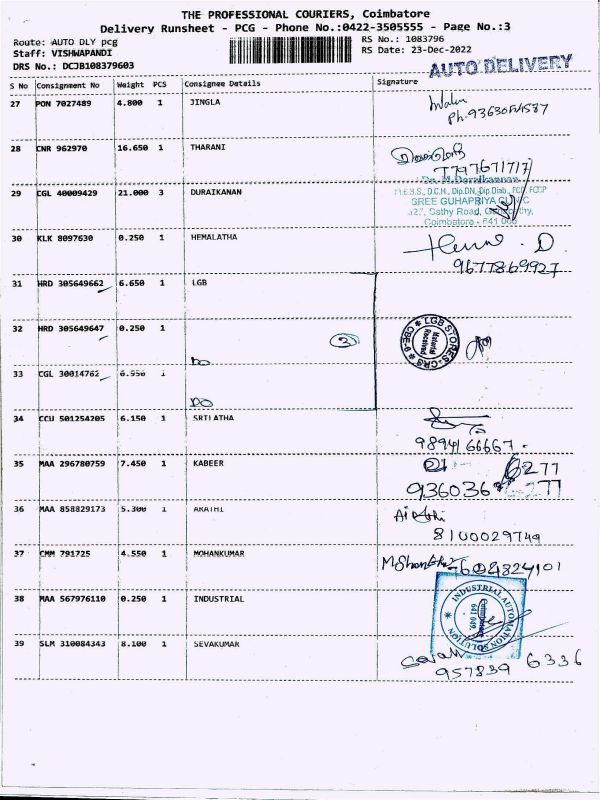 THE PROFESSIONAL COURIERS, Coimbatore
Delivery Runsheet - PCG - Phone No.:0422-3505555 - Page No.:3
Route: AUTO DLY pcg RS No.: 1083796
Staff: VISHWAPANDI RS Date: 23-Dec-2022
DRS No.: DCJB108379603 AUTO DELIVERY
S No Consignment No Weight PCS Consignee Details Signature
27 PON 7027489 4.800 1 JINGLA
28 CNR 962970 16.650 1 THARANI
7797671717
29 CGL 40009429 21.000 3 DURAIKANAN
M.B.B.S., D.C.H., Dip.DN, Dip.Diab., FCIP, FCCP
SREE GUHAPRIYA CLINIC
Cathy Road,
Coimbatore - 641
30 KLK 8097630 0.250 1 HEMALATHA
D.
9677869927
31 HRD 305649662 6.650 1 LGB
32 HRD 305649647 0.250 1
DO
2
LGB STORES-CRS CBE-6
Material Received
33 CGL 30014762 6.950 1
DO
34 CCU 501254205 6.150 1 SRILATHA
9894166667.
35 MAA 296780759 7.450 1 KABEER
936036
36 MAA 858829173 5.300 1 ARATHI
8100029749
37 CMM 791725 4.550 1 MOHANKUMAR
38 MAA 567976110 0.250 1 INDUSTRIAL
INDUSTRIAL AUTOMATION SOLUTION
Coimbatore 641 049.
39 SLM 310084343 8.100 1 SEVAKUMAR
957839 6336